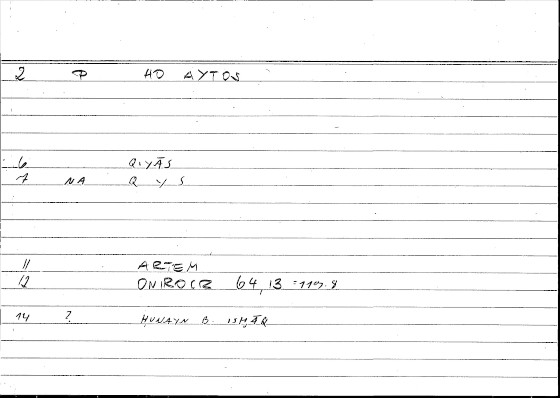 2 P HO AYTOS
6 QIYĀS
7 NA Q Y S
11 ARTEM
12 ONIROCR 64,13 =119,8
14 ? ḤUNAYN B. ISḤĀQ